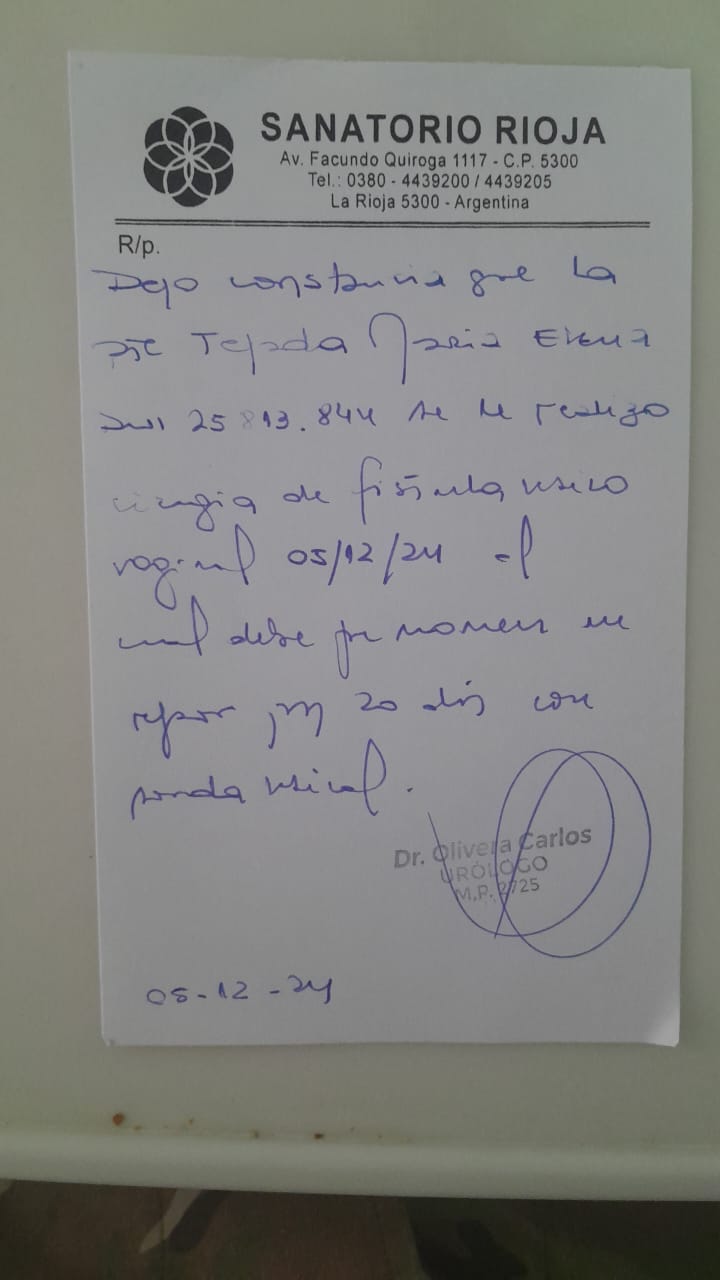 SANATORIO RIOJA
Av. Facundo Quiroga 1117 - C.P. 5300
Tel.: 0380 - 4439200 / 4439205
La Rioja 5300 - Argentina
R/p.
Dejo constancia que la
pte Tejada Maria Elena
DNI 25 813.844 se le realizo
cirugia de fistula vesico
vaginal 05/12/24 el
cual debe permanecer en
repos por 20 dís con
sonda vesical.
Dr. Olivera Carlos
URÓLOGO
M.P. 2725
05-12-24